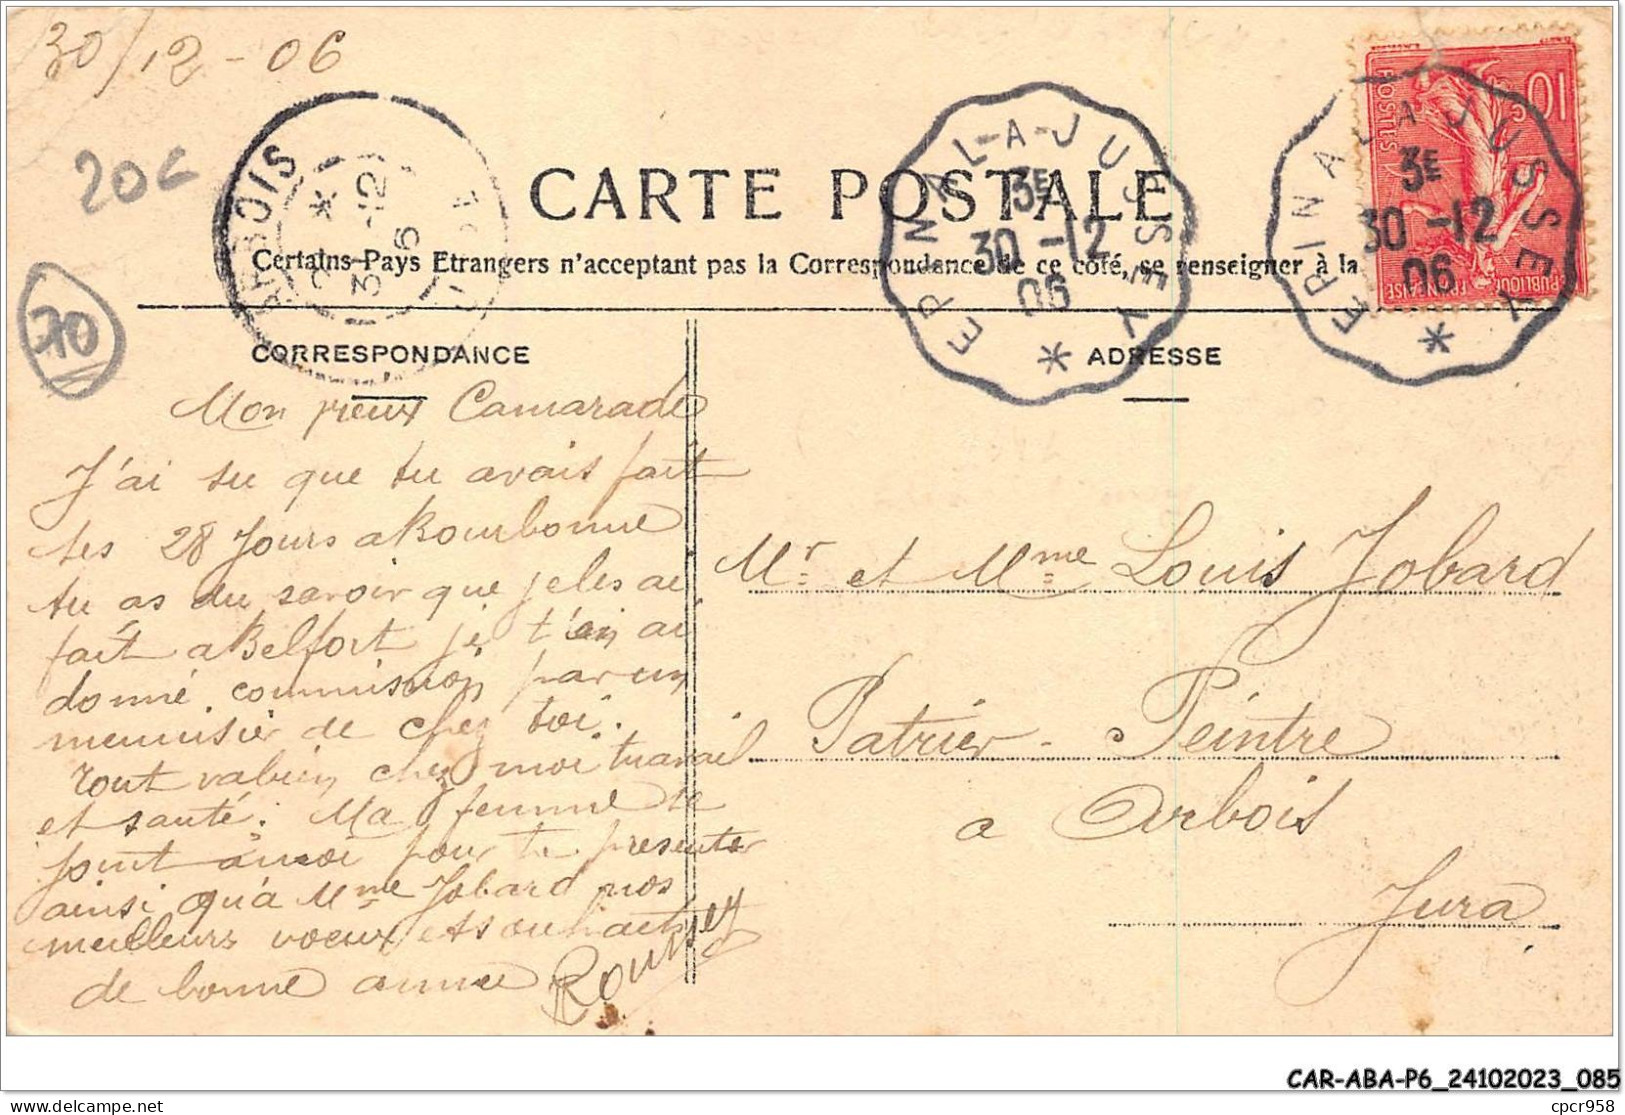 30/12-06
20c
70
ARBOIS
31-12
06
CARTE POSTALE
Certains Pays Etrangers n'acceptant pas la Correspondance de ce côté, se renseigner à la
EPINAL-A-JUSSEY
3E
30-12
06
EPINAL A JUSSEY
3E
30-12
06
10c
POSTES
RÉPUBLIQUE FRANÇAISE
CORRESPONDANCE
ADRESSE
Mon vieux Camarade
J'ai su que tu avais fait
tes 28 Jours a Bourbonne
tu as du savoir que je les ai
fait a Belfort je t'en ai
donné commission par un
menuisier de chez toi.
Tout va bien chez moi travail
et santé. Ma femme se
joint a moi pour te presenter
ainsi qu'a Mme Jobard nos
meilleurs voeux et souhaits
de bonne année
Mr et Mme Louis Jobard
Patrier - Peintre
a Arbois
Jura
CAR-ABA-P6_24102023_085
delcampe.net
cpcr958